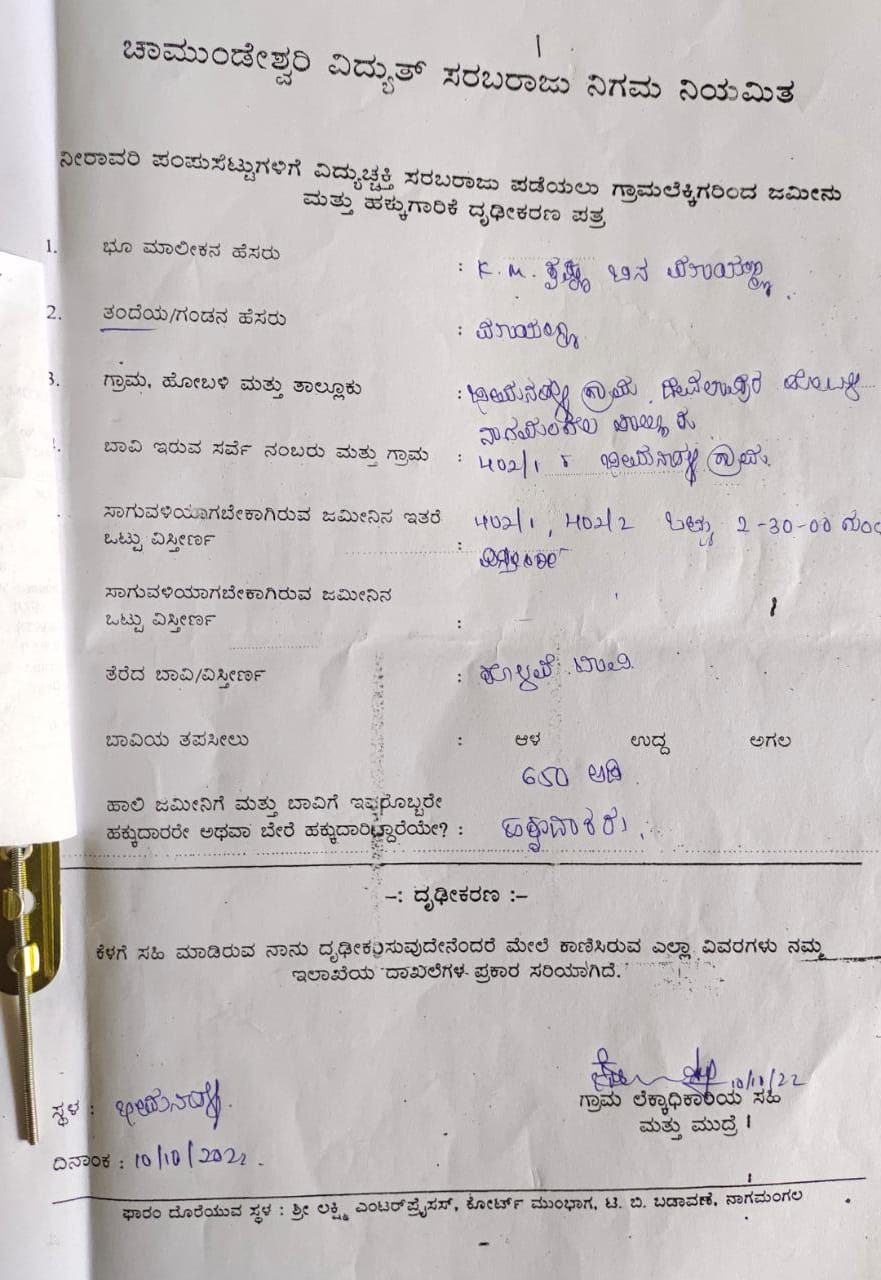 ಚಾಮುಂಡೇಶ್ವರಿ ವಿದ್ಯುತ್ ಸರಬರಾಜು ನಿಗಮ ನಿಯಮಿತ
ನೀರಾವರಿ ಪಂಪುಸೆಟ್ಟುಗಳಿಗೆ ವಿದ್ಯುಚ್ಛಕ್ತಿ ಸರಬರಾಜು ಪಡೆಯಲು ಗ್ರಾಮಲೆಕ್ಕಿಗರಿಂದ ಜಮೀನು
ಮತ್ತು ಹಕ್ಕುಗಾರಿಕೆ ದೃಢೀಕರಣ ಪತ್ರ
1. ಭೂ ಮಾಲೀಕನ ಹೆಸರು : K. M. ಕೃಷ್ಣ ಬಿನ
2. ತಂದೆಯ/ಗಂಡನ ಹೆಸರು :
3. ಗ್ರಾಮ, ಹೋಬಳಿ ಮತ್ತು ತಾಲ್ಲೂಕು : ಗ್ರಾಮ ಹೋಬಳಿ
ನಾಗಮಂಗಲ ತಾಲ್ಲೂಕು
ಬಾವಿ ಇರುವ ಸರ್ವೆ ನಂಬರು ಮತ್ತು ಗ್ರಾಮ : 402/1 ಗ್ರಾಮ
ಸಾಗುವಳಿಯಾಗಬೇಕಾಗಿರುವ ಜಮೀನಿನ ಇತರೆ 402/1, 402/2 ಒಟ್ಟು 2-30-00
ಒಟ್ಟು ವಿಸ್ತೀರ್ಣ : ವಿಸ್ತೀರ್ಣ
ಸಾಗುವಳಿಯಾಗಬೇಕಾಗಿರುವ ಜಮೀನಿನ
ಒಟ್ಟು ವಿಸ್ತೀರ್ಣ : –
ತೆರೆದ ಬಾವಿ/ವಿಸ್ತೀರ್ಣ : ಕೊಳವೆ ಬಾವಿ
ಬಾವಿಯ ತಪಸೀಲು : ಆಳ ಉದ್ದ ಅಗಲ
650 ಅಡಿ
ಹಾಲಿ ಜಮೀನಿಗೆ ಮತ್ತು ಬಾವಿಗೆ ಇವ್ವರೊಬ್ಬರೇ
ಹಕ್ಕುದಾರರೇ ಅಥವಾ ಬೇರೆ ಹಕ್ಕುದಾರಿದ್ದಾರೆಯೇ? :
–: ದೃಢೀಕರಣ :–
ಕೆಳಗೆ ಸಹಿ ಮಾಡಿರುವ ನಾನು ದೃಢೀಕರಿಸುವುದೇನೆಂದರೆ ಮೇಲೆ ಕಾಣಿಸಿರುವ ಎಲ್ಲಾ ವಿವರಗಳು ನಮ್ಮ
ಇಲಾಖೆಯ ದಾಖಲೆಗಳ ಪ್ರಕಾರ ಸರಿಯಾಗಿದೆ.
10/10/22
ಗ್ರಾಮ ಲೆಕ್ಕಾಧಿಕಾರಿಯ ಸಹಿ
ಮತ್ತು ಮುದ್ರೆ
ಸ್ಥಳ :
ದಿನಾಂಕ : 10/10/2022
ಫಾರಂ ದೊರೆಯುವ ಸ್ಥಳ : ಶ್ರೀ ಲಕ್ಷ್ಮಿ ಎಂಟರ್‌ಪ್ರೈಸಸ್, ಕೋರ್ಟ್ ಮುಂಭಾಗ, ಟಿ. ಬಿ. ಬಡಾವಣೆ, ನಾಗಮಂಗಲ